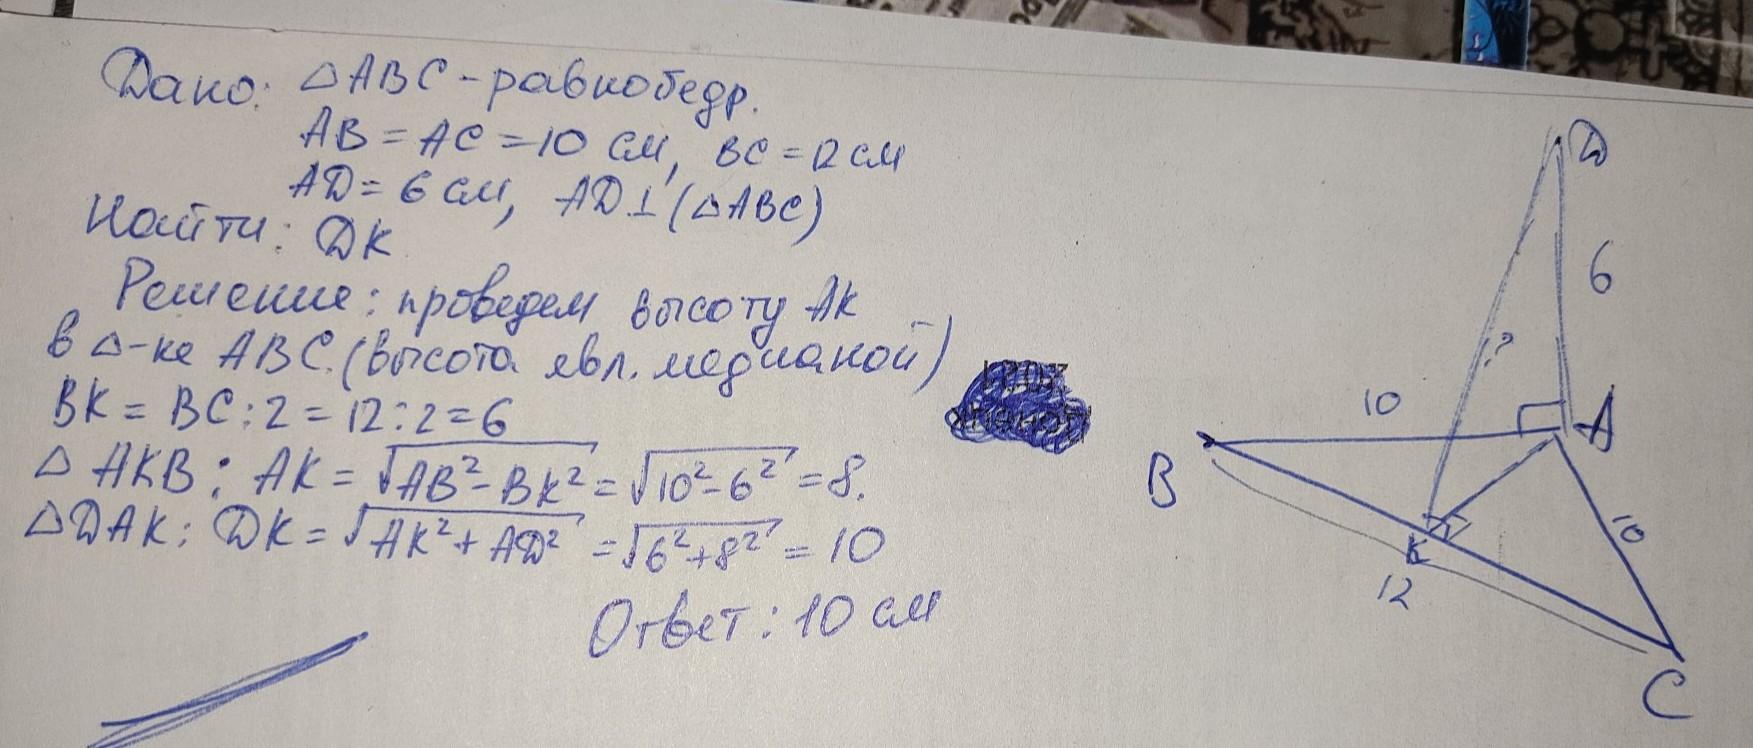 Дано: △ABC - равнобедр.
AB = AC = 10 см, BC = 12 см
AD = 6 см, AD ⊥ (△ABC)
Найти: DK
Решение: проведем высоту AK
в △-ке ABC. (высота явл. медианой)
BK = BC : 2 = 12 : 2 = 6
△ AKB : AK = √AB² - BK² = √10² - 6² = 8.
△DAK : DK = √AK² + AD² = √6² + 8² = 10
Ответ : 10 см
D
6
?
10
A
B
10
K
12
C